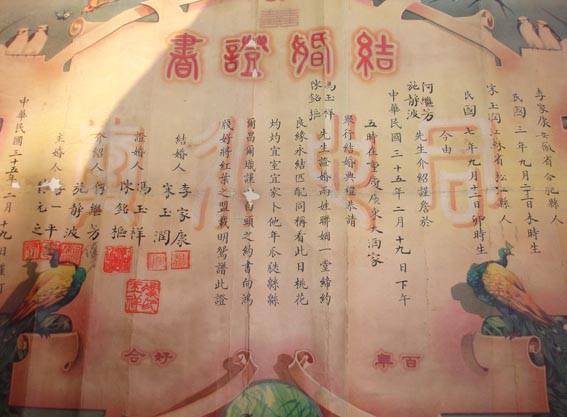 結婚證書
李家康安徽省合肥縣人
民國三年九月二日未時生
宋玉潤江蘇省松江縣人
民國七年九月十二日卯時生
今由
何繼方
施靜波
先生介紹謹詹於
中華民國三十五年二月十九日下午
五時在重慶康東大潤家
舉行結婚典禮恭請
馮玉祥
陳銘樞
先生證婚兩姓聯姻一堂締約
良緣永結匹配同稱看此日桃花
灼灼宜室宜家卜他年瓜瓞緜緜
爾昌爾熾謹以白頭之約書向鴻
牋好將紅葉之盟載明鴛譜此證
結婚人 李家康
宋玉潤
證婚人 馮玉祥
陳銘樞
介紹人 何繼方
施靜波
主婚人 一平
元之
中華民國三十五年二月十九日謹訂
百年好合